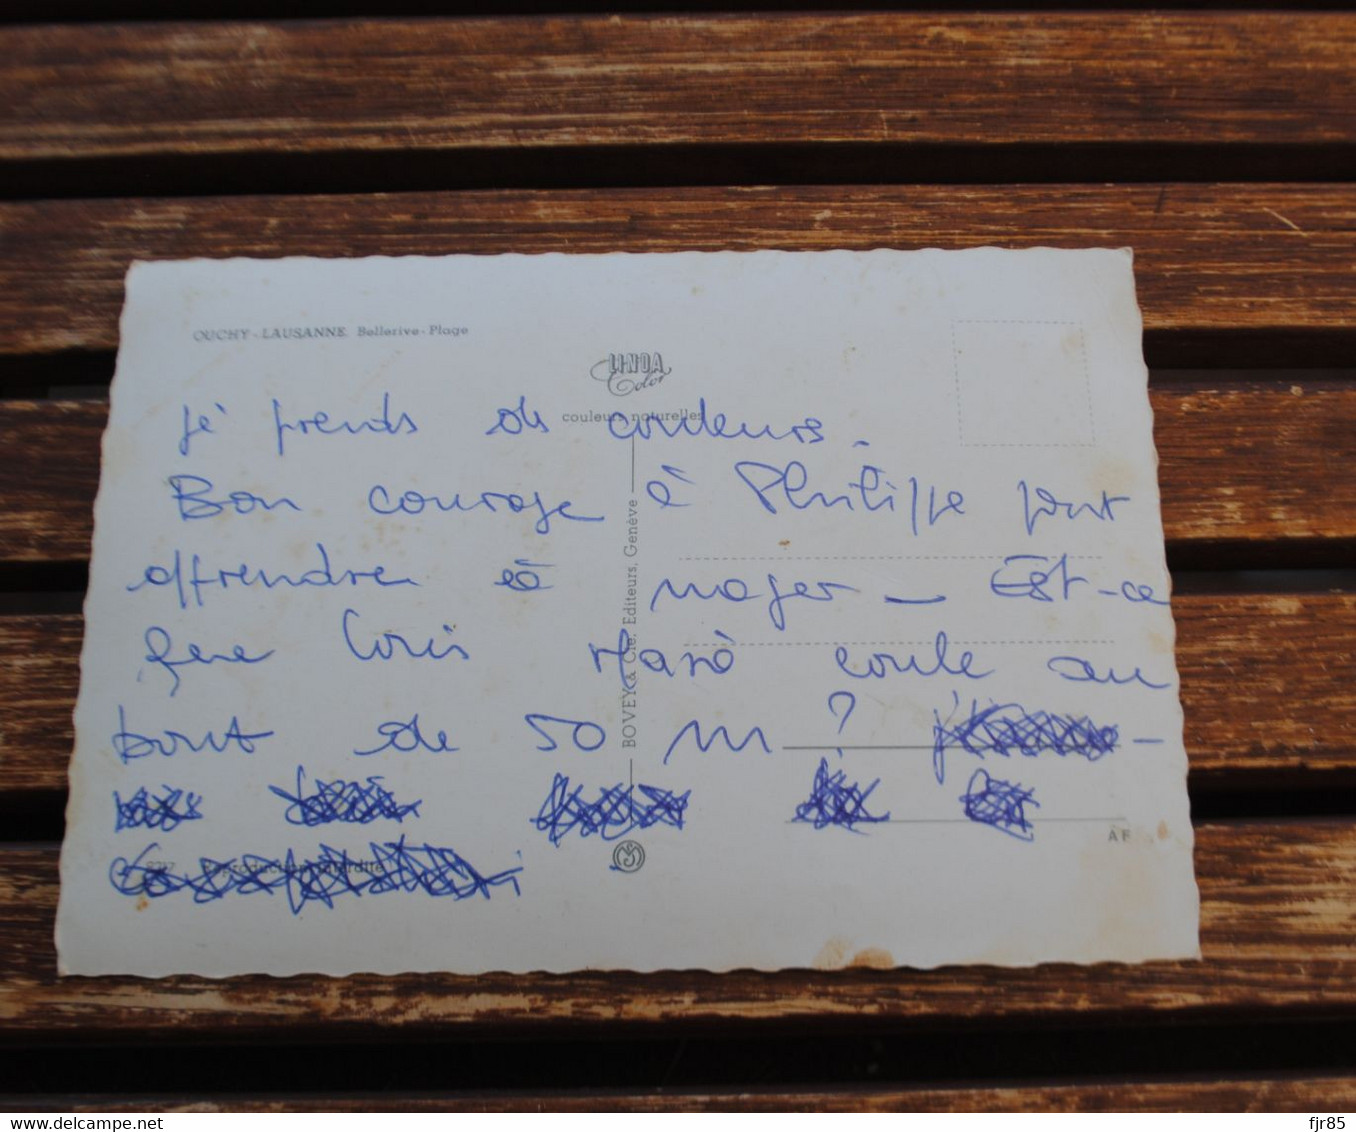 OUCHY - LAUSANNE. Bellerive-Plage
LINDA
Color
couleurs naturelles
je prends des couleurs.
Bon courage à Philippe pour
apprendre à nager - Est-ce
que Coule au
bout de 50 m ?
BOVEY & Cie, Editeurs, Genève
Reproduction interdite
AF
delcampe.net
fjr85